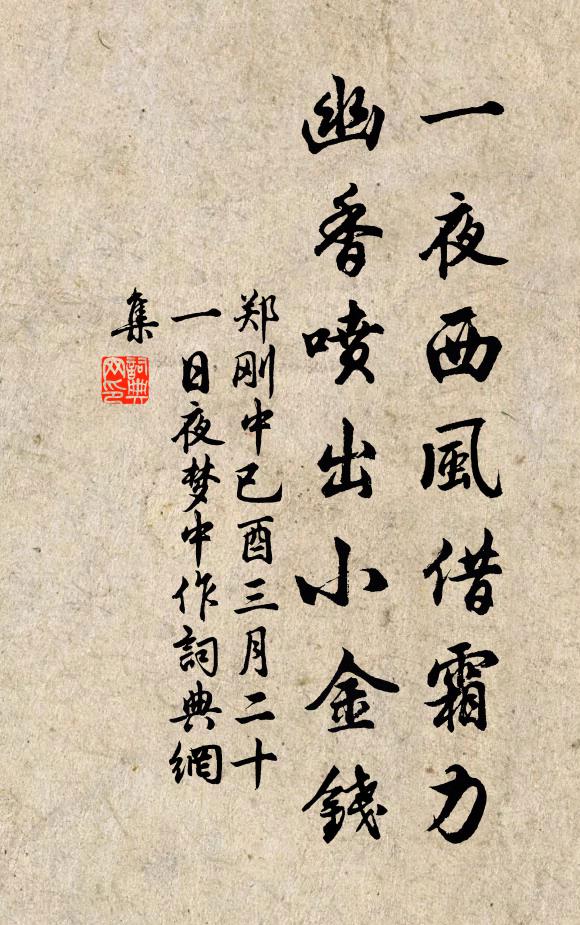 一夜西風借霜力
幽香噴出小金錢
郑刚中己酉三月二十
一日夜梦中作詞典網
集
詞典
网印